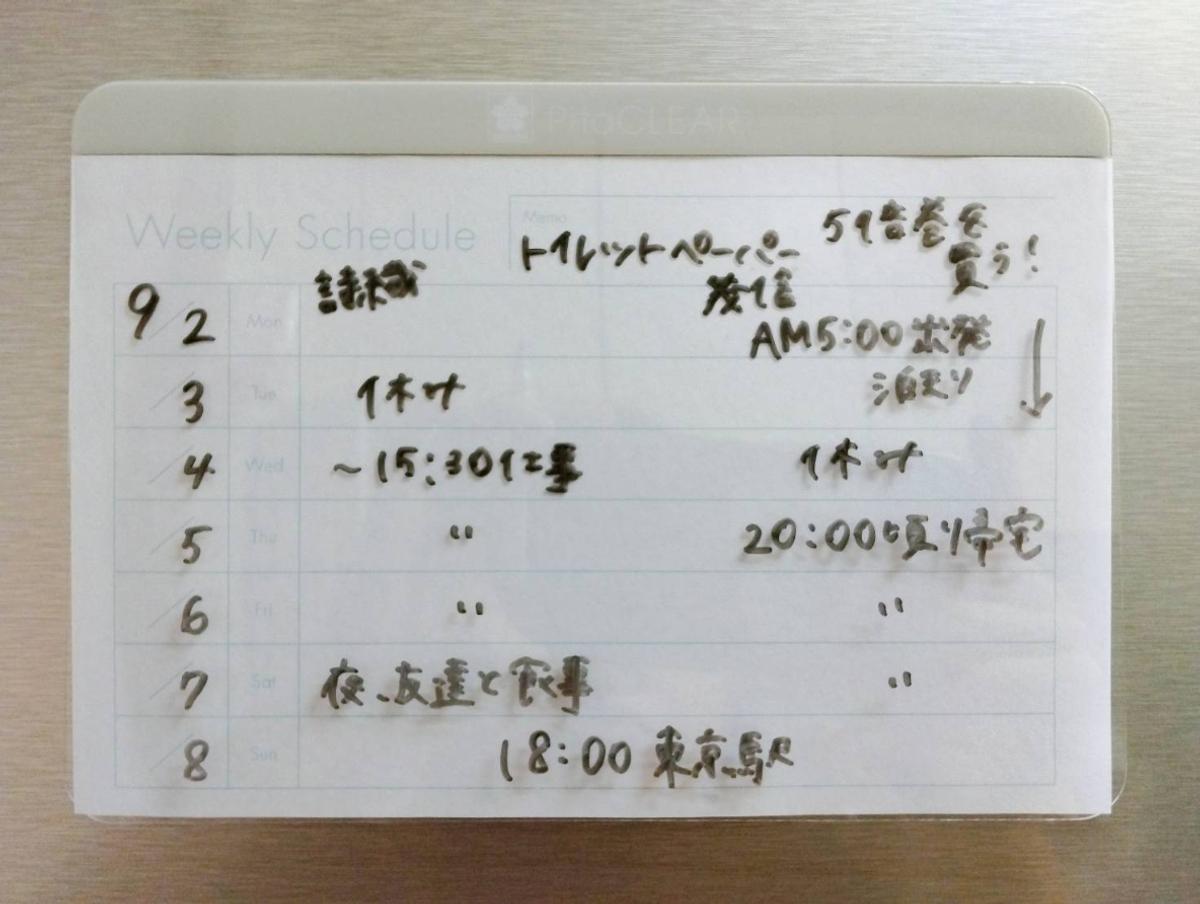 PitaCLEAR
Weekly Schedule
Memo
トイレットペーパー 5倍巻を
買う!
9/2 Mon AM5:00出発 ↓
/3 Tue 休み 泊まり
/4 Wed ~15:30仕事 休み
/5 Thu 〃 20:00頃帰宅
/6 Fri 〃 〃
/7 Sat 夜、友達と食事 〃
/8 Sun 18:00 東京駅